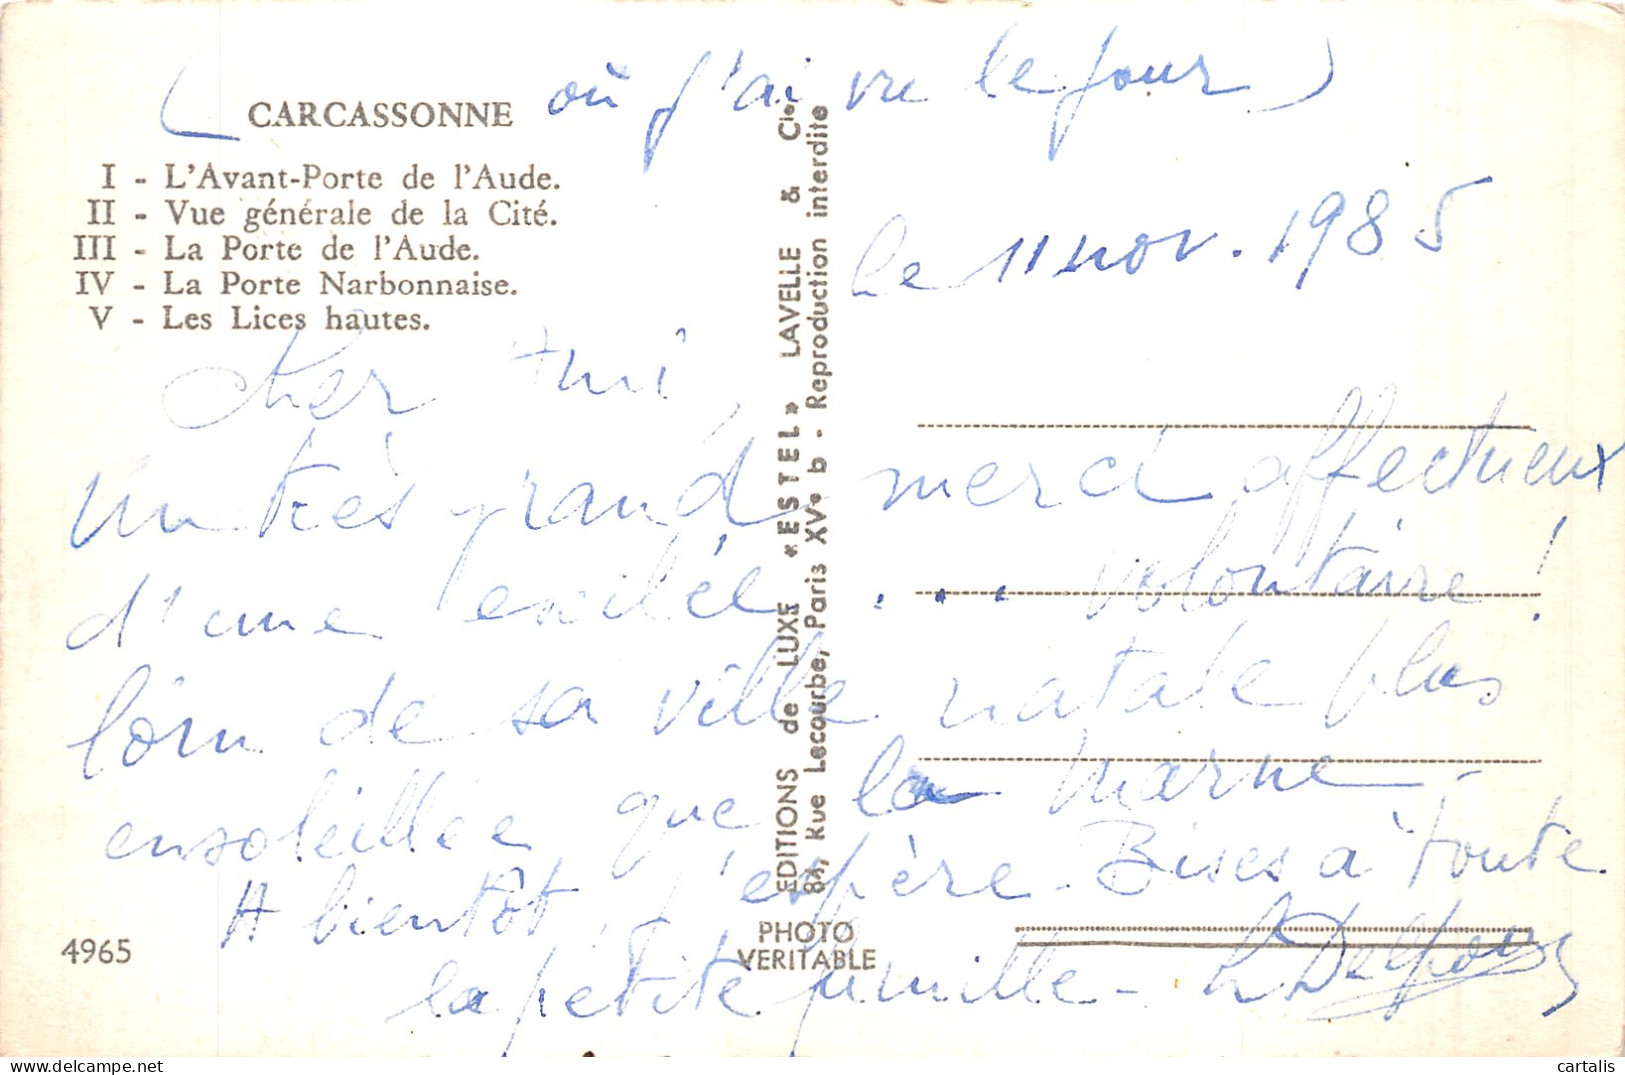 ( où j'ai vu le jour )
CARCASSONNE
I - L'Avant-Porte de l'Aude.
II - Vue générale de la Cité.
III - La Porte de l'Aude.
IV - La Porte Narbonnaise.
V - Les Lices hautes.
le 11 nov. 1985
Cher ami,
un très grand merci affectueux
d'une exilée ... volontaire !
loin de sa ville natale plus
ensoleillée que la Marne -
A bientôt, j'espère - Bises à toute
la petite famille -
EDITIONS de LUXE «ESTEL» LAVELLE & Cie
84, Rue Lecourbe, Paris XVe b - Reproduction interdite
PHOTO
VERITABLE
4965
cartalis